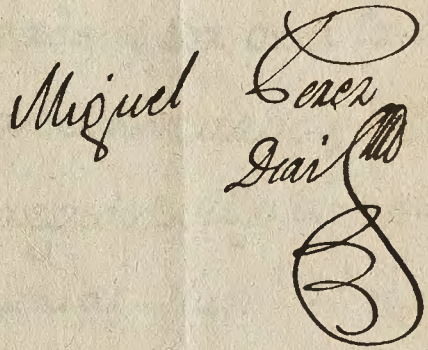 Miguel Perez
Diaz